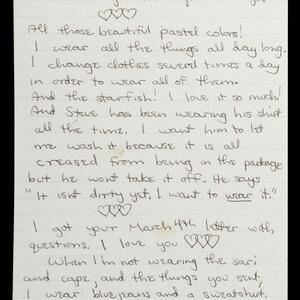 All those beautiful pastel colors!
I wear all the things all day long.
I change clothes several times a day
in order to wear all of them.
And the starfish! I love it so much!
And Steve has been wearing his shirt
all the time. I want him to let
me wash it because it is all
creased from being in the package
but he won't take it off. He says
"It isn't dirty yet, I want to wear it."
I got your March 4th letter with
questions. I love you
When I'm not wearing the sari
and cape, and the things you sent,
I wear bluejeans and a sweatshirt.